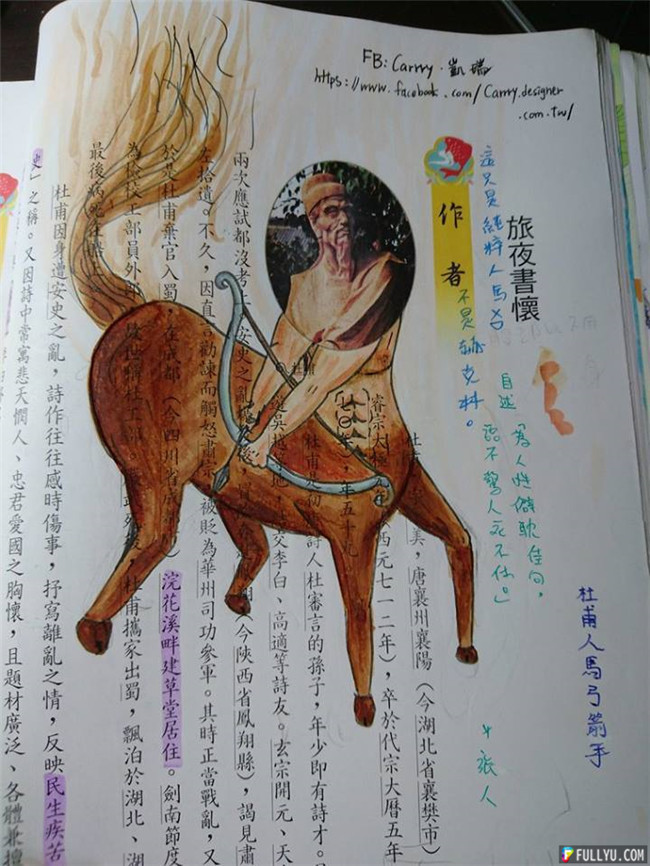 FB: Carrry. 凱瑞
https://www.facebook.com/Carrry.designer
.com.tw/
杜甫人馬弓箭手
旅夜書懷
自述「為人性僻耽佳句，
語不驚人死不休。」
這只是純粹人馬
不是
作者
美，唐襄州襄陽（今湖北省襄樊市）
睿宗太極元年（西元七一二年），卒於代宗大曆五年
年），年五十九
杜甫是初唐詩人杜審言的孫子，年少即有詩才。
遊吳越等地，結交李白、高適等詩友。玄宗開元、天
兩次應試都沒考上。安史之亂爆發後，（今陝西省鳳翔縣），謁見肅
左拾遺。不久，因直言勸諫而觸怒肅宗，被貶為華州司功參軍。其時正當戰亂，又
於是杜甫棄官入蜀，在成都（今四川省成都市）浣花溪畔建草堂居住。劍南節度
為檢校工部員外郎，後世稱杜工部。嚴武死後，杜甫攜家出蜀，飄泊於湖北、湖
最後病死在船上
杜甫因身遭安史之亂，詩作往往感時傷事，抒寫離亂之情，反映民生疾苦
史」之稱。又因詩中常寓悲天憫人、忠君愛國之胸懷，且題材廣泛、各體兼擅
FULLYU.COM